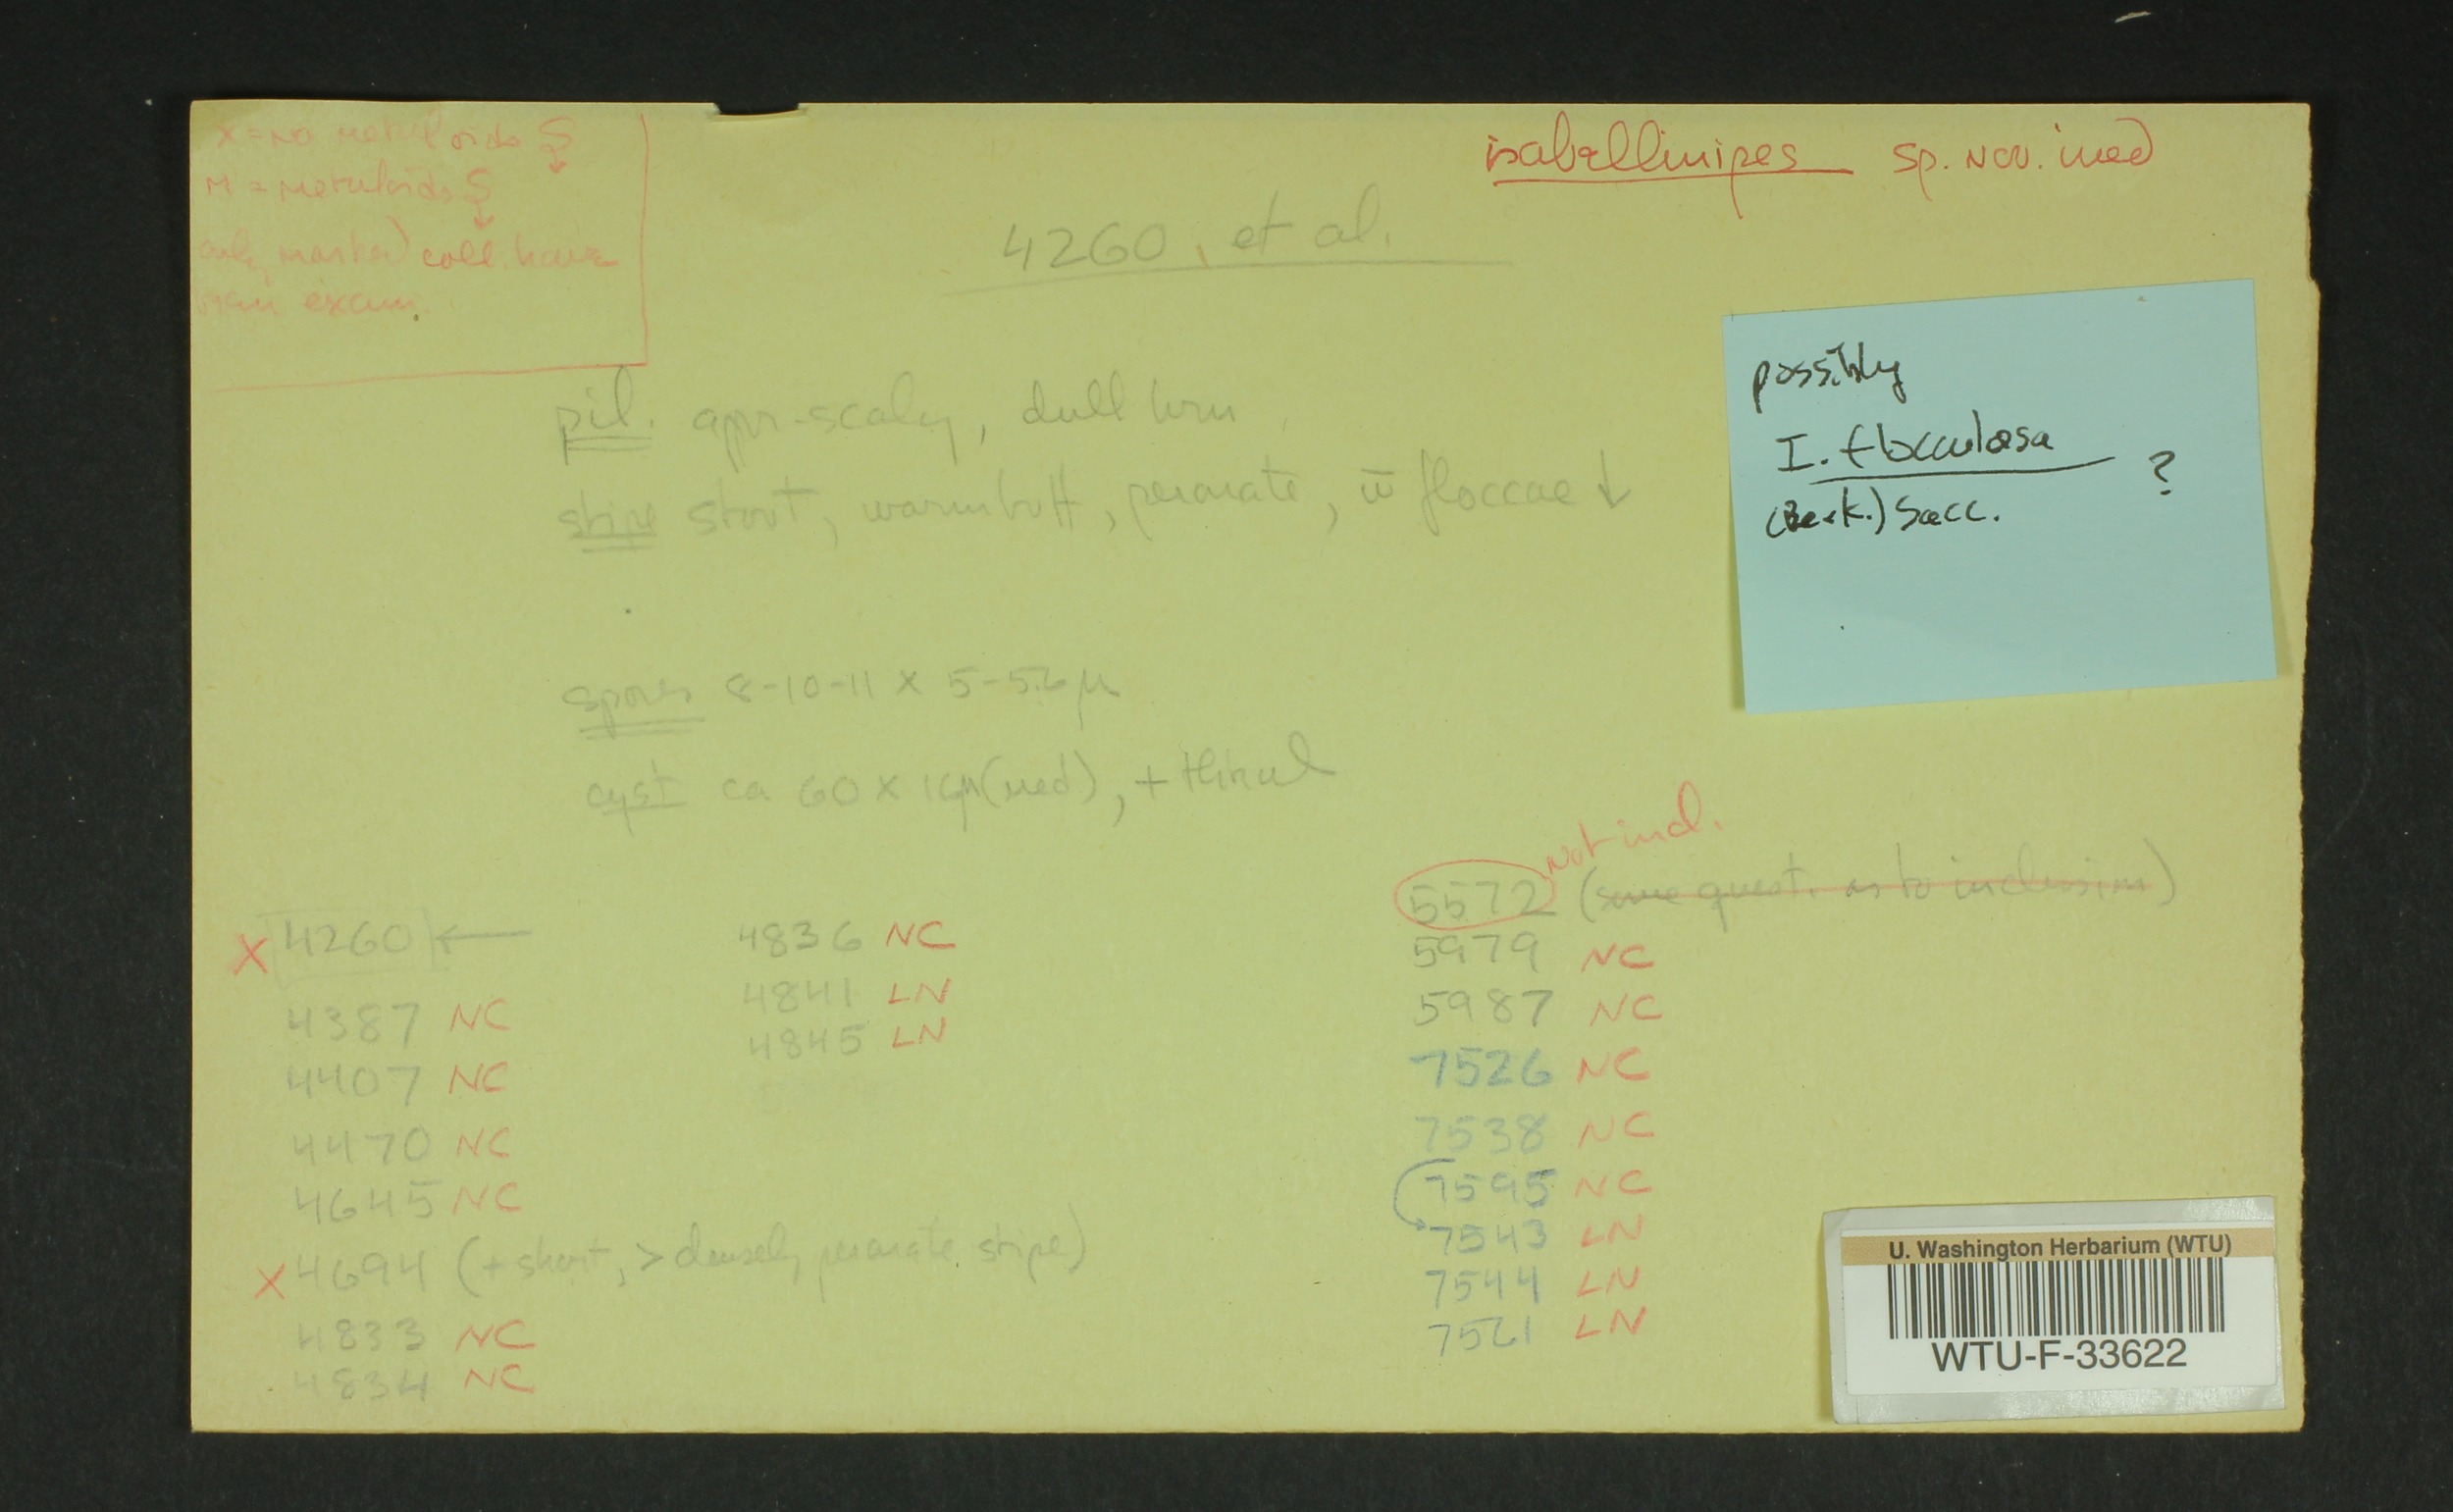 X = no metuloids ↓
M = metuloids ↓
only marked coll. have
been exam.
isabellinipes sp. nov. ined
4260, et al.
possibly
I. flocculosa ?
(Berk.) Sacc.
pil. appr-scaly, dull brn
stipe stout, warm buff, peronate, w̄ floccae ↓
spores 8-10-11 x 5-5.6 µ
cyst ca 60 x 16µ (med),
X 4260 ←
4387 NC
4407 NC
4470 NC
4645 NC
X 4694 (+ short, > densely peronate stipe)
4833 NC
4834 NC
4836 NC
4841 LN
4845 LN
not incl.
5572 (some quest. as to inclusion)
5979 NC
5987 NC
7526 NC
7538 NC
7595 NC
7543 LN
7544 LN
7521 LN
U. Washington Herbarium (WTU)
WTU-F-33622